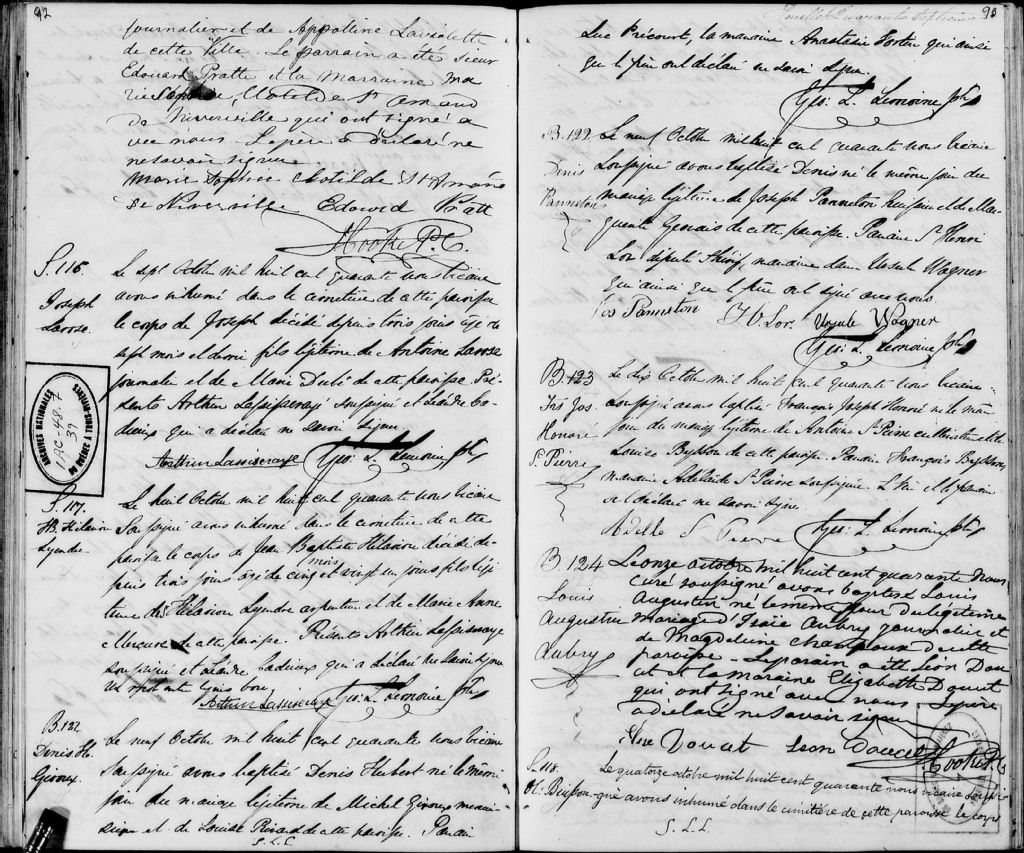 92
journalier et de Appolline Laviolette
de cette Ville. Le parrain a été sieur
Edouard Pratte et la Marraine Ma
rie Sophie, Clotilde St Amand
de Niverville qui ont signé a
vec nous. Le père a déclaré ne
ne savoir signer
Marie Sophie Clotilde St Amand
de Niverville Edouard Pratt
Cooke Ptre
S. 116.
Joseph
Larose.
Le sept Octobre mil huit cent quarante nous vicaire
avons inhumé dans le cimetière de cette paroisse
le corps de Joseph décédé depuis trois jours âgé de
sept mois et demi fils légitime de Antoine Larose
journalier et de Marie Dubé de cette paroisse. Pré-
sents Arthur Lassisseraye soussigné et Léandre Ca-
dieux qui a déclaré ne savoir signer
Arthur Lassiseraye Geo: L. Lemoine Ptre
ARCHIVES NATIONALES
DU QUÉBEC À TROIS-RIVIÈRES
1AC-48-7
39
S. 117.
J.B. Hilarion
Lyndre
Le huit Octobre mil huit cent quarante nous vicaire
soussigné avons inhumé dans le cimetière de cette
paroisse le corps de Jean Baptiste Hilarion décédé de-
mois
puis trois jours âgé de cinq et vingt un jours fils légi
time de Hilarion Lyndre arpenteur et de Marie Anne
Mercure de cette paroisse. Présents Arthur Lassisseraye
soussigné et Léandre Cadieux qui a déclaré ne savoir signer
Arthur Lassiseraye Geo: L. Lemoine Ptre
B. 121
Denis Hu.
Giroux.
Le neuf Octobre mil huit cent quarante nous vicaire
soussigné avons baptisé Denis Hubert né le même
jour du mariage légitime de Michel Giroux menui-
sier et de Louise Rivard de cette paroisse. Parain
S.L.L
93
Feuillet Quarante Septième
Luc Pricourt, la maraine Anastasie Fortin qui ainsi
que le père ont déclaré ne savoir signer.
Geo: L. Lemoine Ptre
B. 122
Denis
Panneton
Le neuf Octobre mil huit cent quarante nous vicaire
soussigné avons baptisé Denis né le même jour du
mariage légitime de Joseph Panneton huissier et de Mar-
guerite Gervais de cette paroisse. Parain St Henri
Lor député Shérif, maraine dame Ursule Wagner
qui ainsi que le père ont signé avec nous.
Jos Panneton H Lor. Ursule Wagner
Geo: L. Lemoine Ptre
B. 123
Frs Jos.
Honoré
St. Pierre
Le dix Octobre mil huit cent quarante nous vicaire
soussigné avons baptisé François Joseph Honoré né le même
jour du mariage légitime de Antoine St Pierre cultivateur et de
Louise Bysson de cette paroisse. Parain François Bysson,
maraine Adélaïde St Pierre soussignée. Le père et le parain
ont déclaré ne savoir signer.
Adelle St Pierre Geo: L. Lemoine Ptre
B. 124
Louis
Augustin
Aubry
Le onze octobre mil huit cent quarante Nous
curé soussigné avons baptisé Louis
Augustin né le même jour du légitime
mariage d'Isaïe Aubry journalier et
de Magdeleine Charpoux de cette
paroisse - Le parain a été Léon Dou
cet et la maraine Elizabeth Doucet
qui ont signé avec nous Le père
a déclaré ne savoir signer
Elise Doucet Leon Doucet
Cooke Ptre
S. 118.
Bysson
Le quatorze octobre mil huit cent quarante nous vicaire soussi-
gné avons inhumé dans le cimetière de cette paroisse le corps
S.L.L